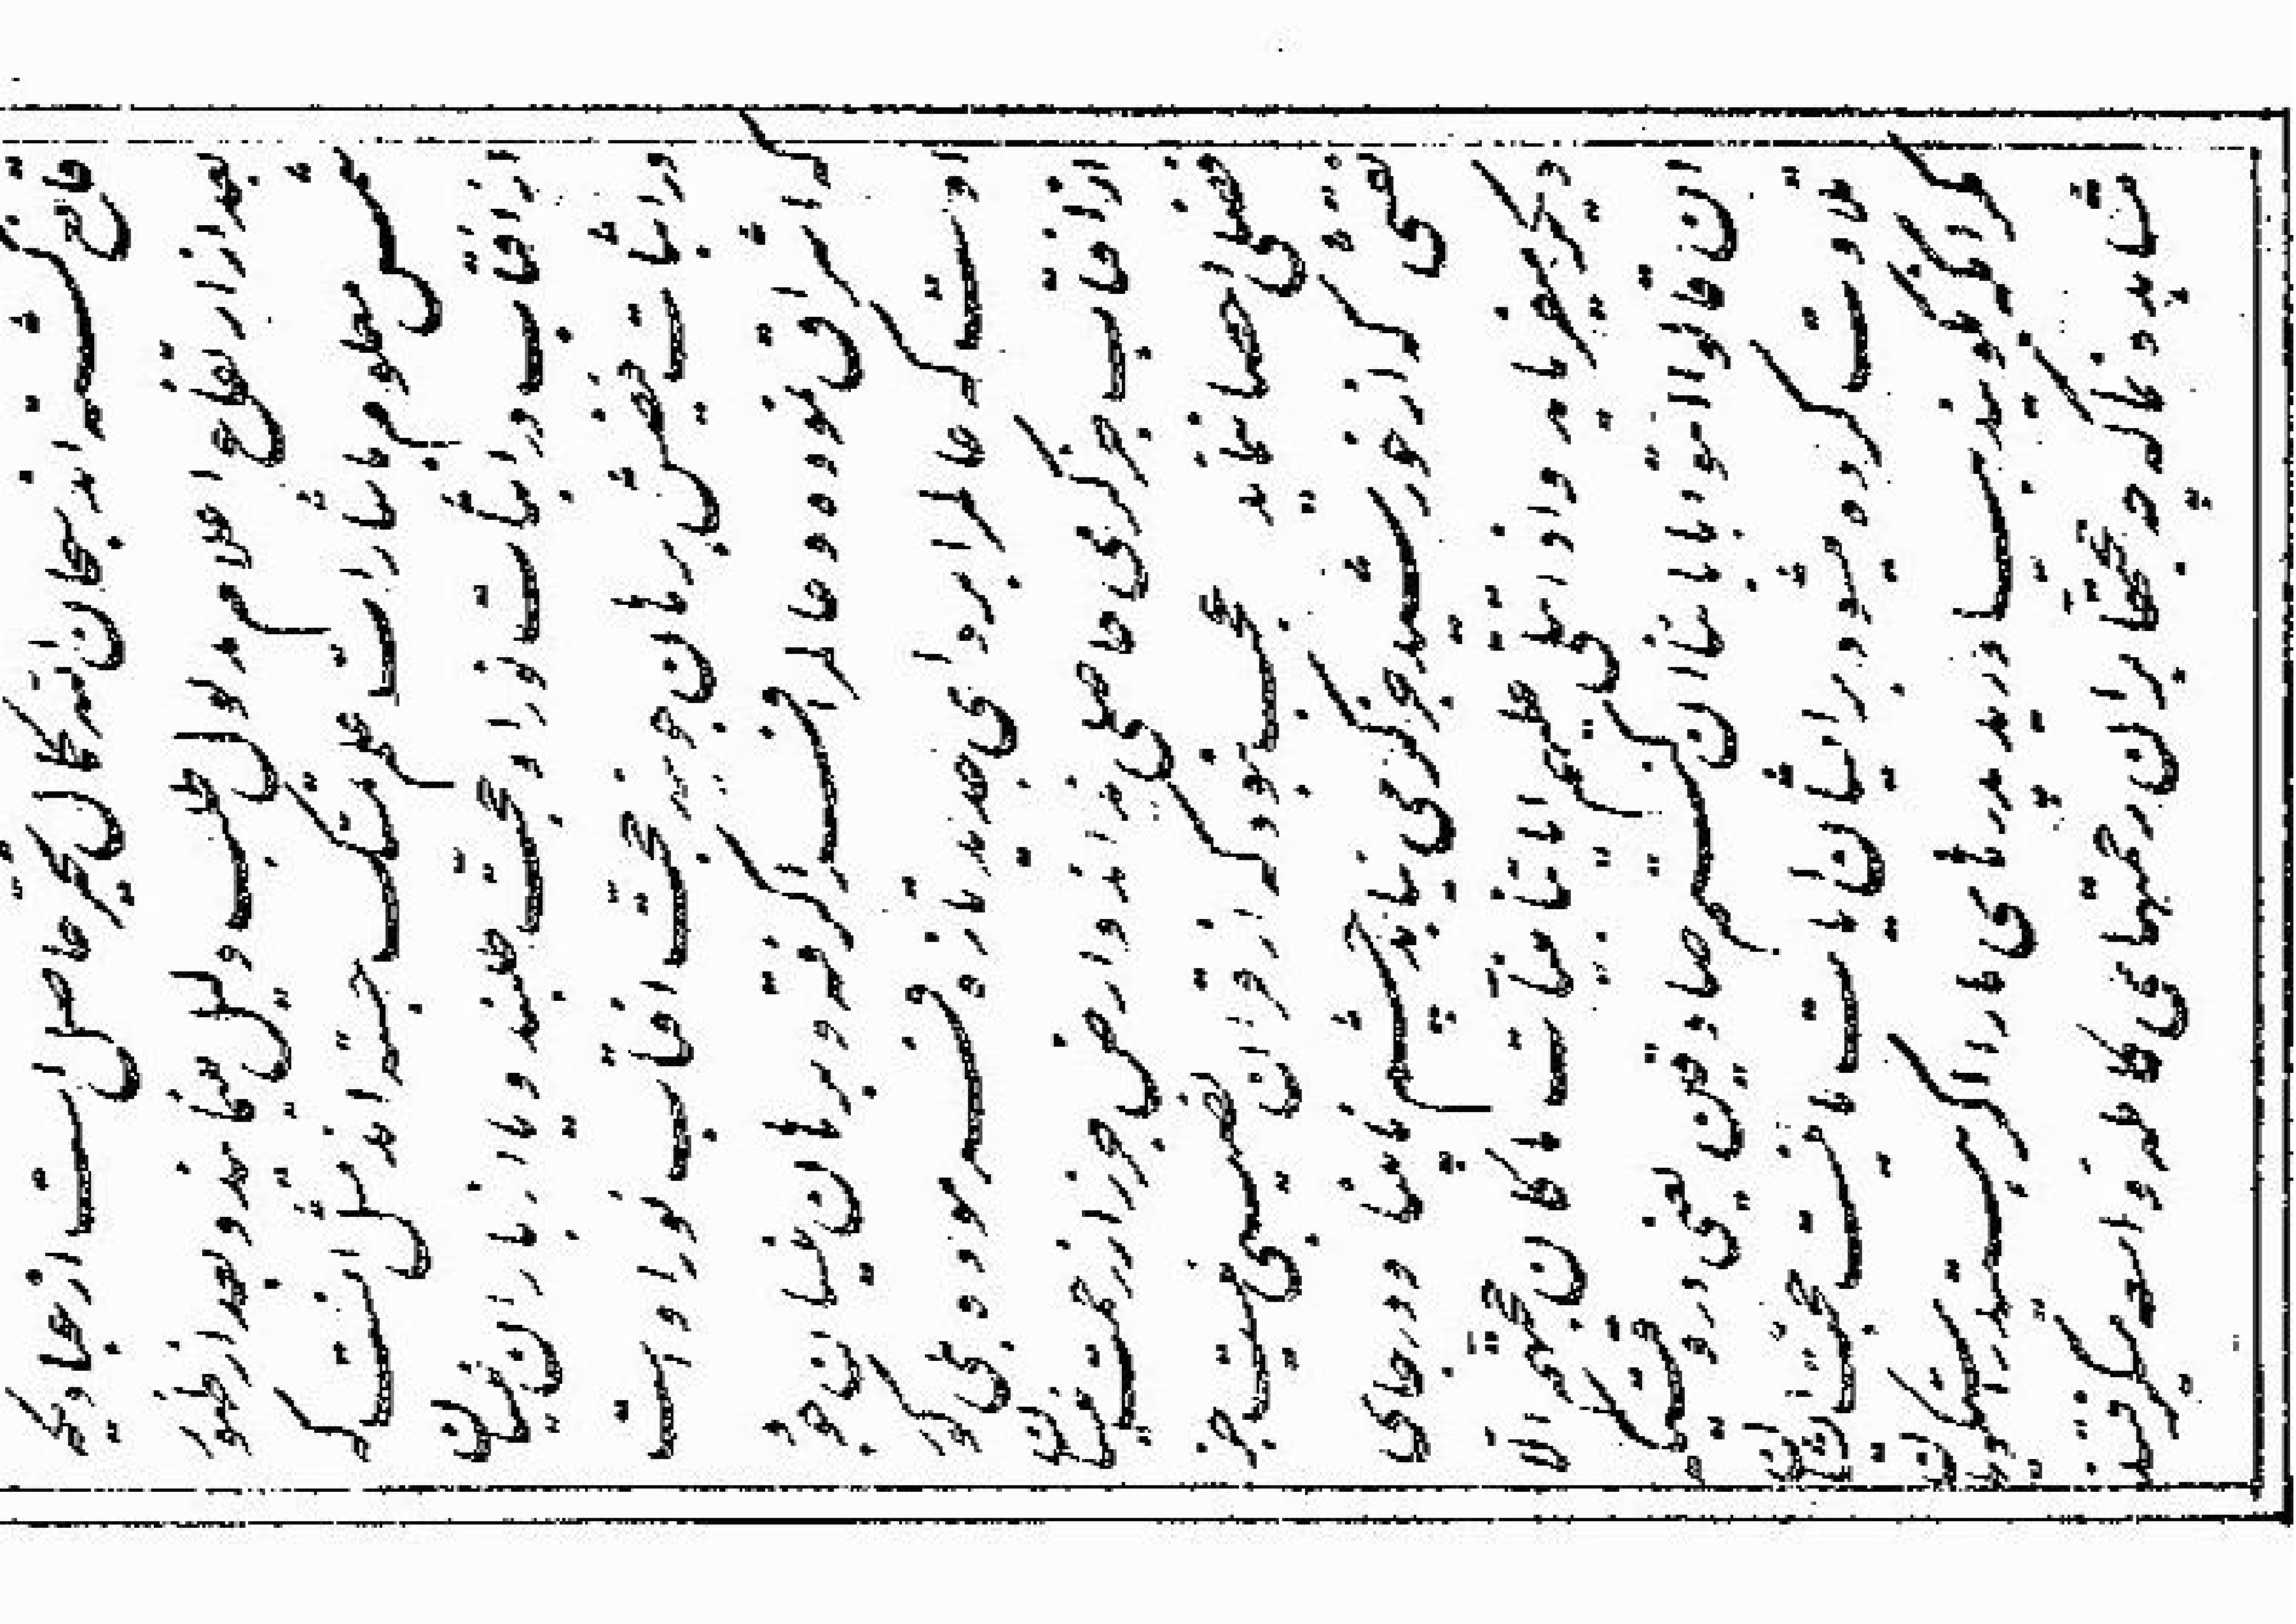 بعد از ارتفاع اعلام مدلول طلب دلیل نمایند و بعد از ظهور
شمس معلوم باشارات علم تمسک جسته اند مثل آنست که
از آفتاب در اثبات نور او حجت طلبند و یا از باران نیسان
در اثبات فیضش برهان جویند حجت آفتاب نور اوست
که اشراق نموده و عالم را فرا گرفته و برهان نیسان جود
اوست که عالم را بردای جدید تازه فرموده بلی کور
از آفتاب جز گرمی حاصلی نداند و ارض جرز از رحمت نیسان
فضلی احصا نماید عجب نبود که از قرآن نصیبی نیست جز
نقشی که از خورشید جز گرمی نیابد چشم نابینا و در جای
دیگر میفرماید و اذا تتلی علیهم ایاتنا بینات ما کان حجتهم الا
ان قالوا ائتوا بابائنا ان کنتم صادقین یعنی در وقتیکه
تلاوت کرده میشود بر ایشان ایات نیست حجت ایشان
مگر آنکه میگویند بیاورید پدرهای ما را اگر هستید راستگویان
که چه حجتها بر آن رحمتهای کامله واسعه میگرفتند